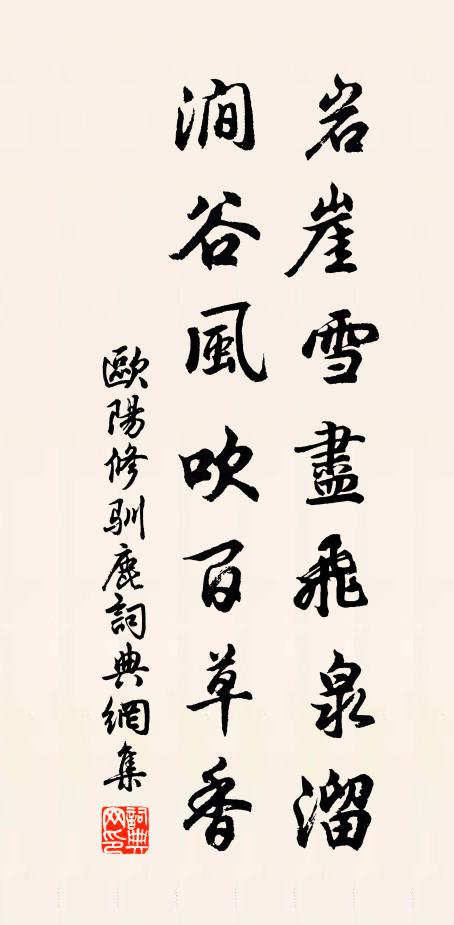 岩崖雪盡飛泉溜
澗谷風吹百草香
歐陽修馴鹿詞典網集
詞典網印